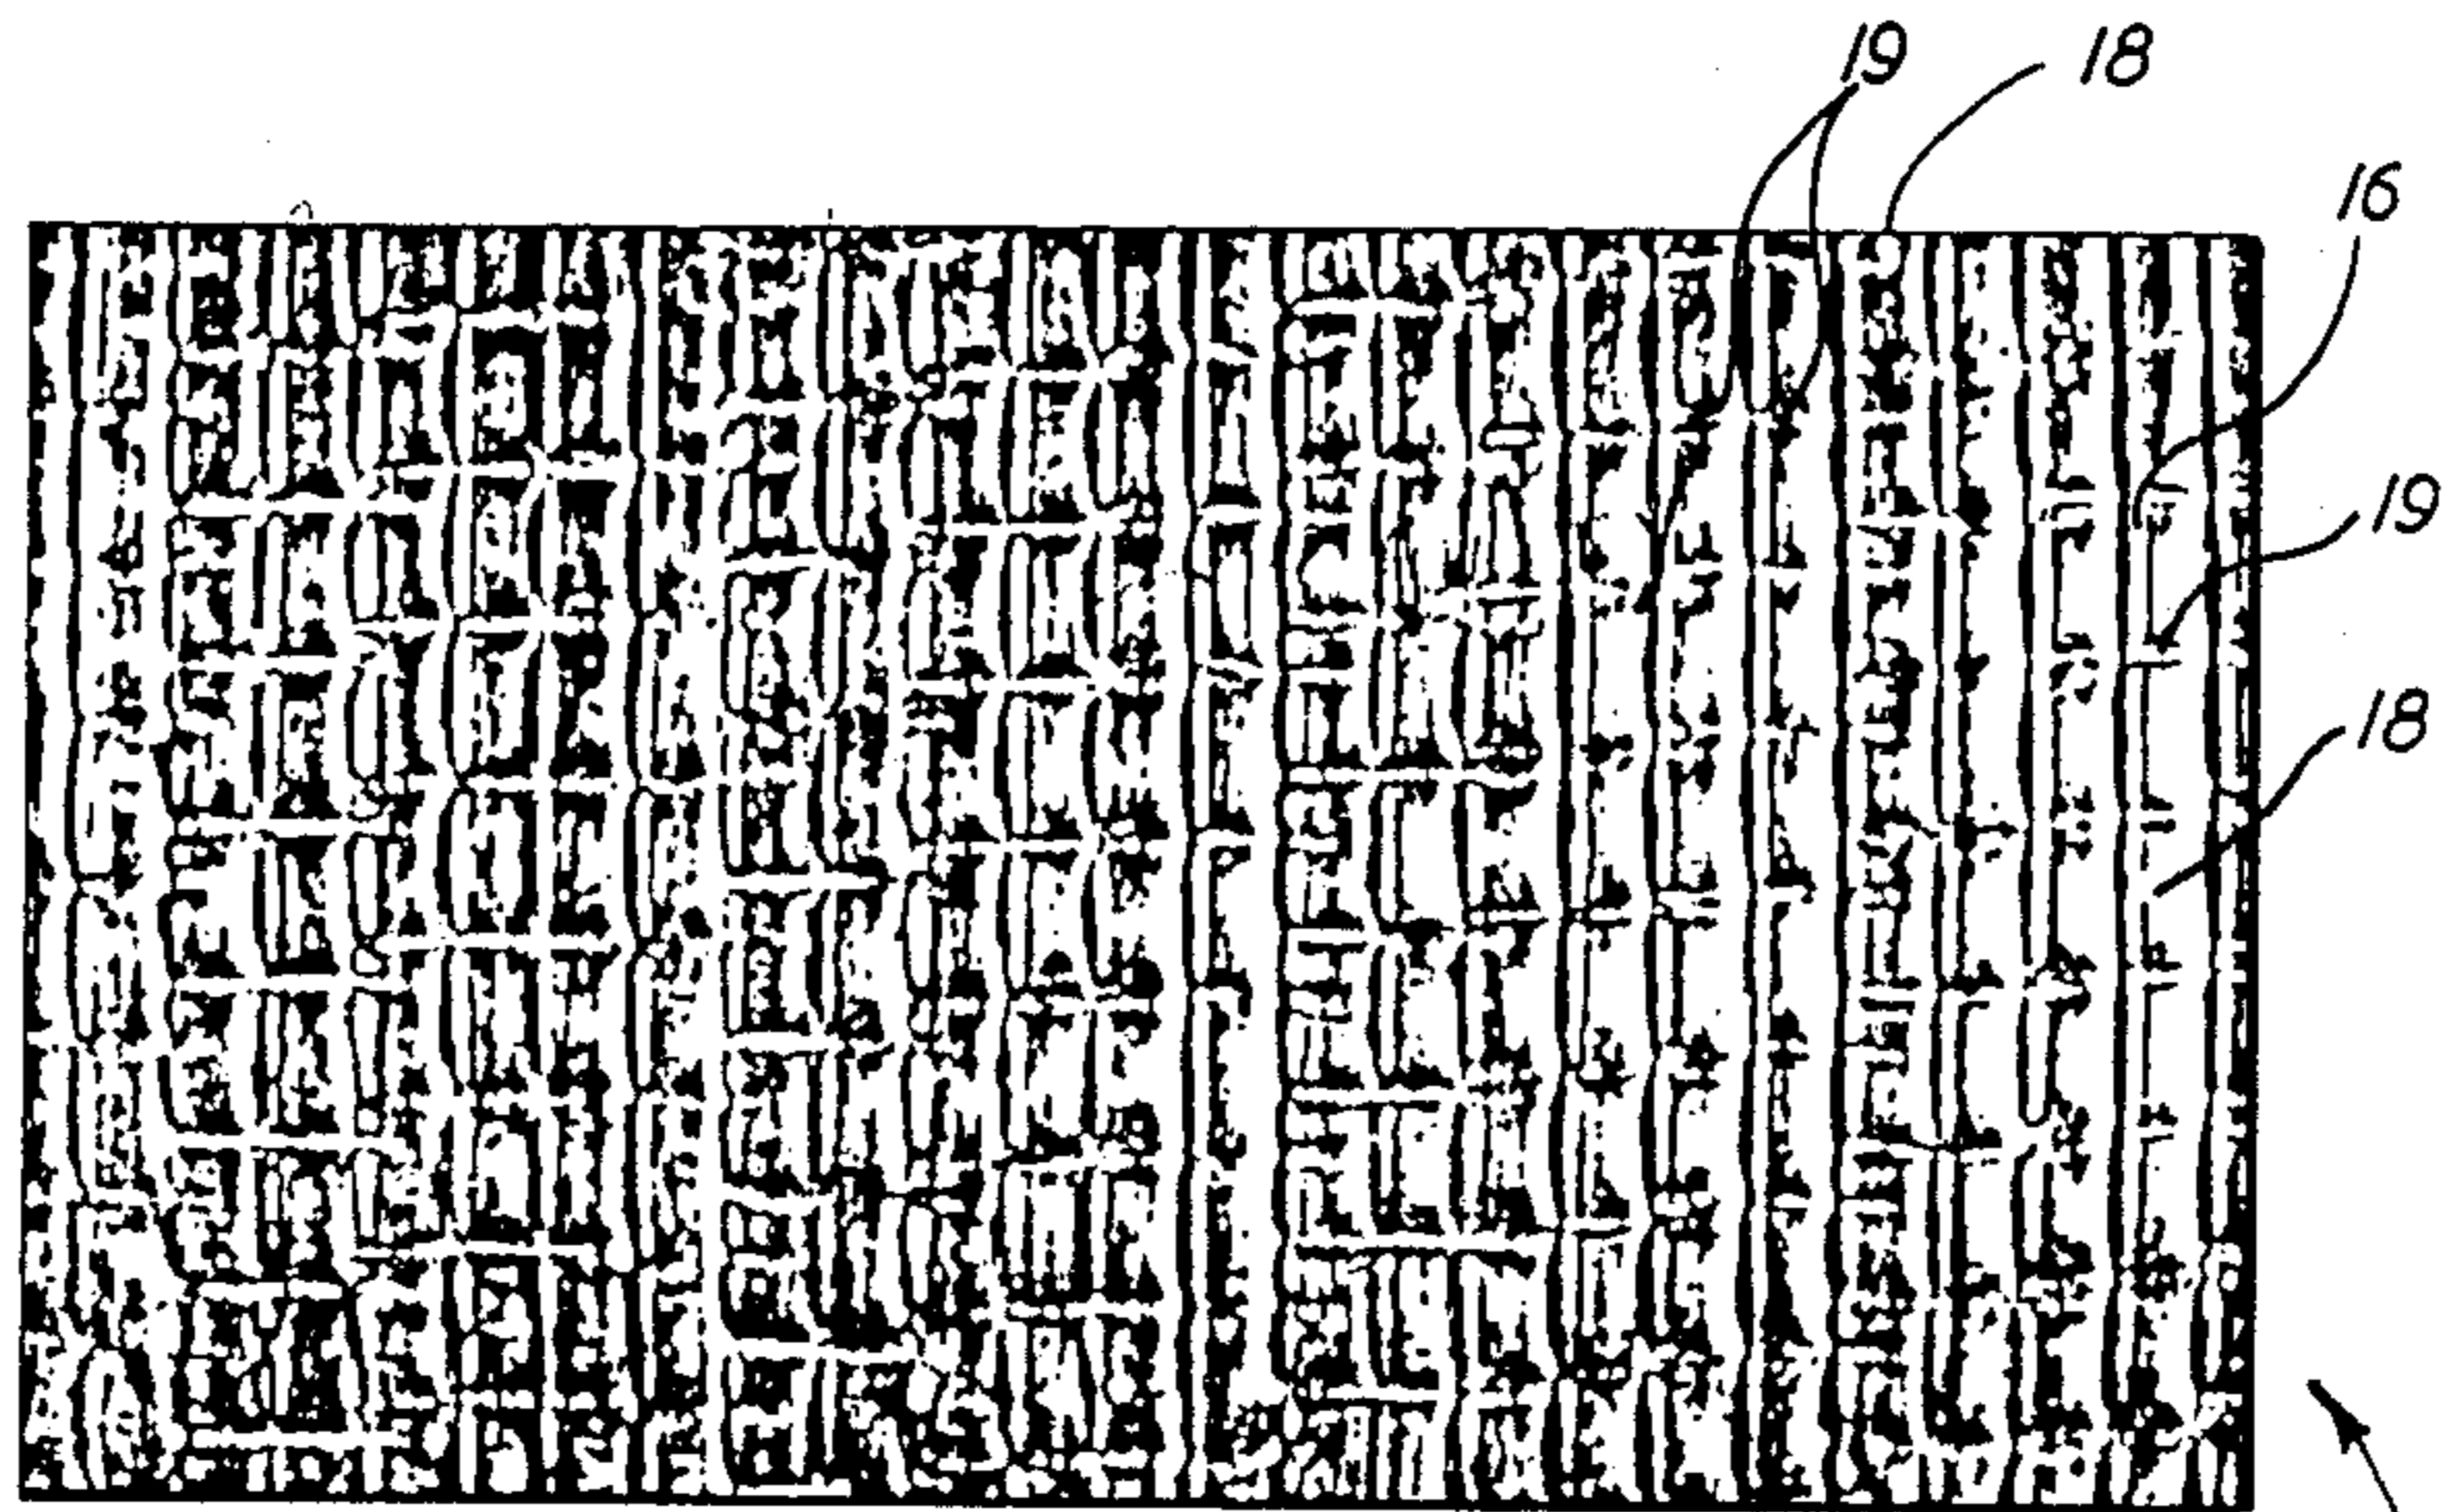 19 18
16
19
18